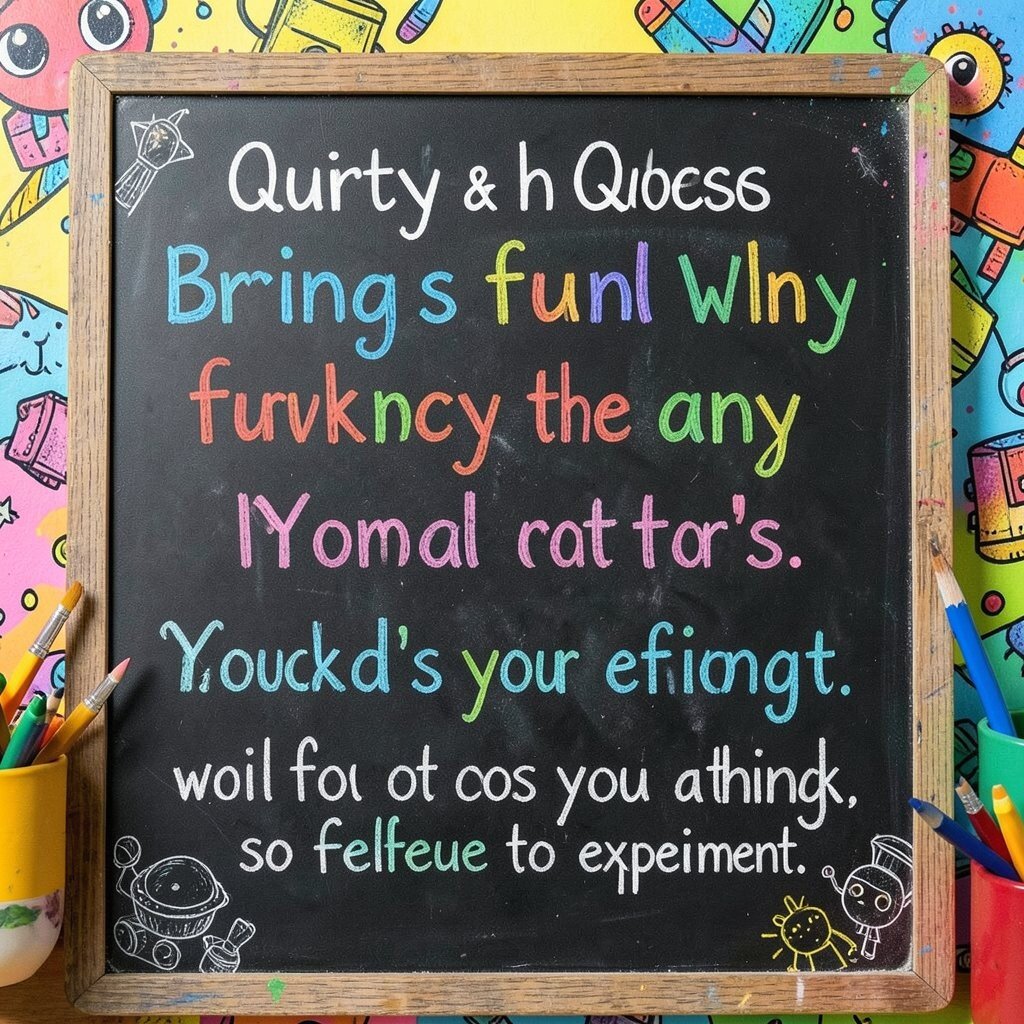 Qurty & h Qibcss
Brings funl Wlny
furvkncy the any
lYomal rottor's.
Youckd's your efiomgt.
woil foi ot cos you athingk,
so felfeue to expeiment.